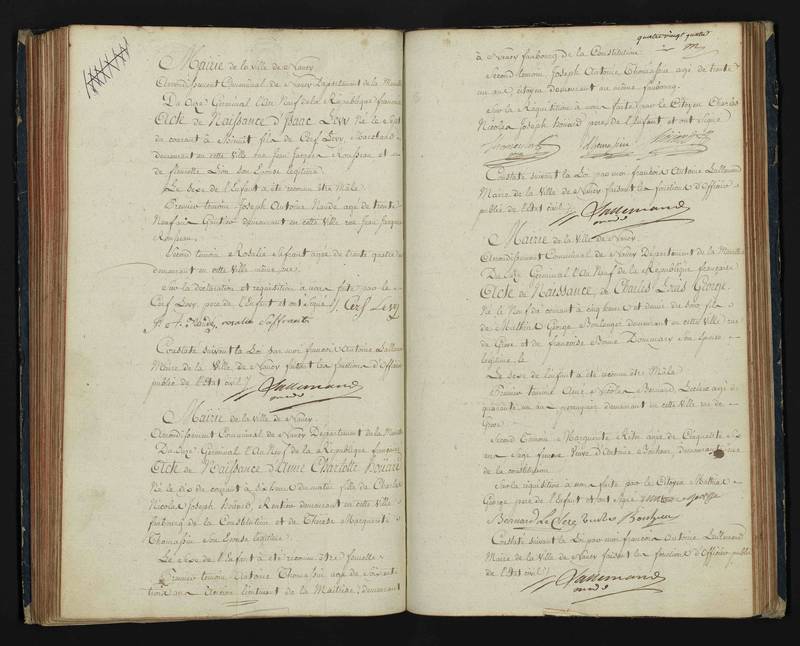 Mairie de la Ville de Nancy
Arrondissement Communal de Nancy Département de la Meurthe
Du onze Germinal l'An Neuf de la République française
Acte de Naissance d'Isaac Lévy Né le Sept
du courant à Minuit fils de Cerf Lévy, Marchand
demeurant en cette Ville rue Jean Jacques Rousseau et
de fleurette Lion son Epouse légitime
Le Sexe de l'Enfant a été reconnu être Mâle.
Premier témoin Joseph Antoine Naudé, agé de trente
Neuf ans demeurant en cette Ville rue Jean Jacques
Rousseau.
Second témoin Rosalie Saffrant agée de trente quatre
demeurant en cette Ville même rue
Sur la déclaration et requisition à nous faite par le
Cerf Levy père de l'Enfant et ont Signé Cerf Levy
rosalie Saffrant
Constaté suivant la Loi par moi françois Antoine Lallemand
Maire de la Ville de Nancy faisant les fonctions d'Officier
public de l'Etat civil
Lallemand
Mairie de la Ville de Nancy
Arrondissement Communal de Nancy Département de la Meurthe
Du onze Germinal l'An Neuf de la République française
Acte de Naissance d'Anne Charlotte Hoüard
Née le dix du courant à six heures du matin fille de Charles
Nicolas Joseph Hoüard, Rentier demeurant en cette Ville
faubourg de la Constitution et de Thérese Marguerite
Thomassin son Epouse légitime
Le Sexe de l'Enfant a été reconnu être femelle
Premier témoin Antoine Thomassin agé de Soixante
ancien lieutenant de la Maitrise, demeurant
quatre vingt quatre
à Nancy faubourg de la Constitution
Second témoin Joseph Antoine Thomassin agé de trente
un an citoyen demeurant au même faubourg.
Sur la Requisition à nous faite par le Citoyen Charles
Nicolas Joseph Hoüard père de l'Enfant et ont Signé
Constaté suivant la Loi par moi françois Antoine Lallemand
Maire de la Ville de Nancy faisant les fonctions d'Officier
public de l'Etat civil
Lallemand
Mairie de la Ville de Nancy
Arrondissement Communal de Nancy Département de la Meurthe
Du onze Germinal l'An Neuf de la République française
Acte de Naissance, de Charles Louis George
Né le Neuf du courant à cinq heures et demie du soir fils
de Mathis George Boulanger demeurant en cette Ville rue
de Grève et de françoise Bonne Dommary son Epouse
légitime
Le Sexe de l'enfant a été reconnu être Mâle
Premier témoin Nicolas Bernard Leclerc agé de
quarante un an perruquier demeurant en cette Ville rue de
Grève
Second Témoin Marguerite agée de Cinquante Six
ans Sage femme Veuve d'Antoine Bonhem demeurant
de la constitution
Sur la réquisition à nous faite par le Citoyen Mathis
George père de l'Enfant et ont Signé
Bernard Le Clerc Bonhem
Constaté suivant la Loi par moi françois Antoine Lallemand
Maire de la Ville de Nancy faisant les fonctions d'Officier public
de l'Etat civil
Lallemand